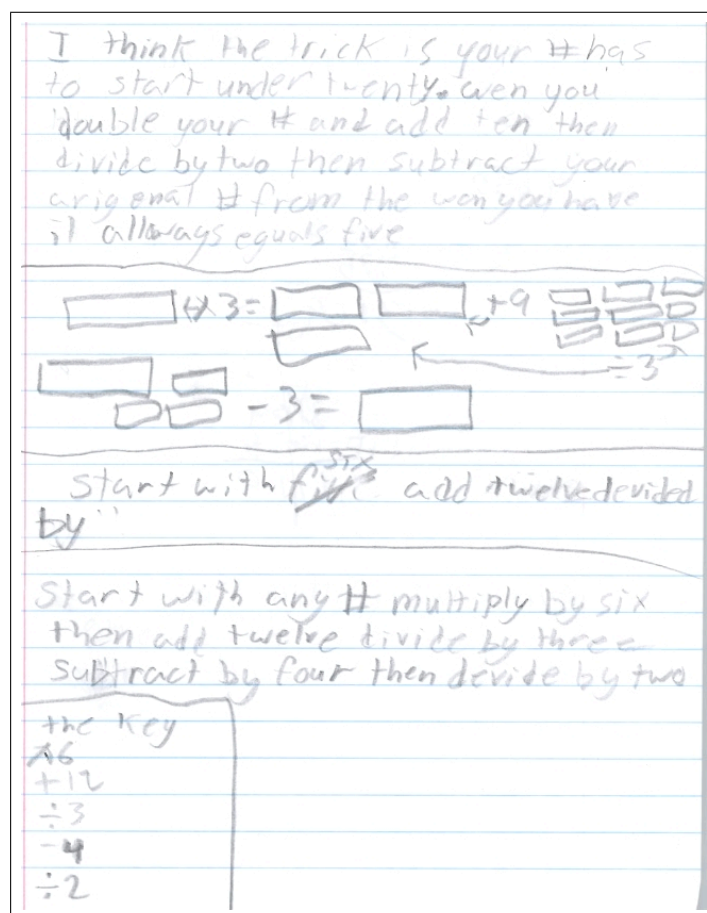 I think the trick is your # has
to start under twenty. wen you
double your # and add ten then
divide by two then subtract your
arigenal # from the won you have
it allways equals five
x 3 = + 9
÷ 3
- 3 =
Start with six add twelve devided
by
Start with any # multiply by six
then add twelve divide by three
subtract by four then devide by two
the key
x6
+12
÷3
-4
÷2